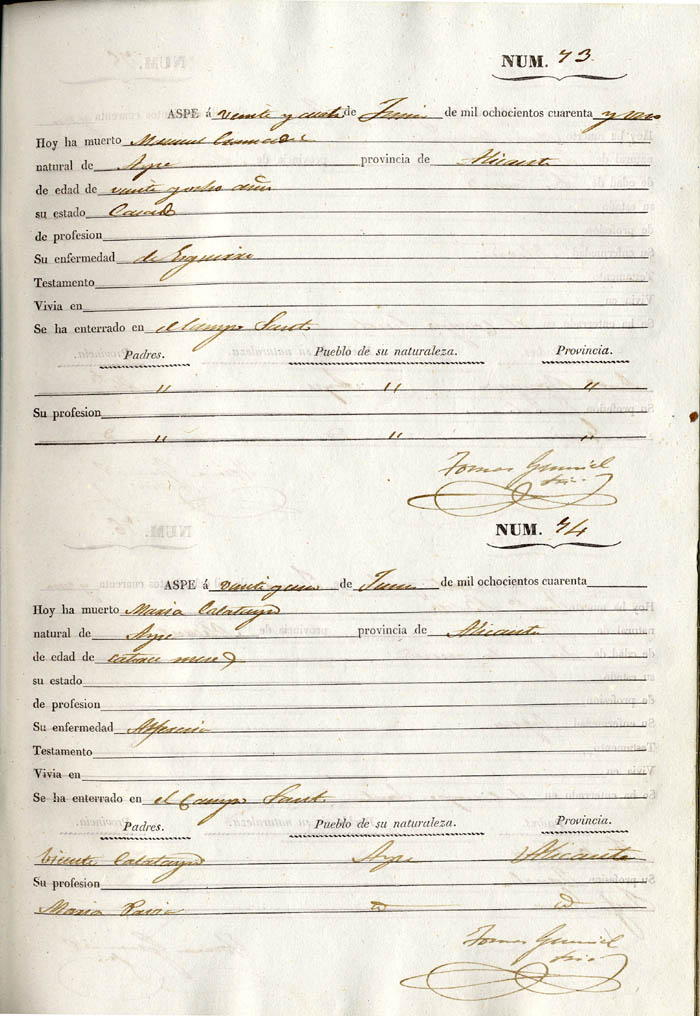 NUM. 73
ASPE á veinte y de Junio de mil ochocientos cuarenta y
Hoy ha muerto Manuel
natural de Aspe provincia de Alicante
de edad de veinte y ocho años
su estado Casado
de profesion
Su enfermedad de
Testamento
Vivia en
Se ha enterrado en el Campo Santo
Padres. Pueblo de su naturaleza. Provincia.
" " "
Su profesion
" " "
Tomas
NUM. 74
ASPE á veinte y uno de Junio de mil ochocientos cuarenta
Hoy ha muerto Maria Calatayud
natural de Aspe provincia de Alicante
de edad de catorce meses
su estado
de profesion
Su enfermedad
Testamento
Vivia en
Se ha enterrado en el Campo Santo
Padres. Pueblo de su naturaleza. Provincia.
Vicente Calatayud Aspe Alicante
Su profesion
Maria Pavia id id
Tomas